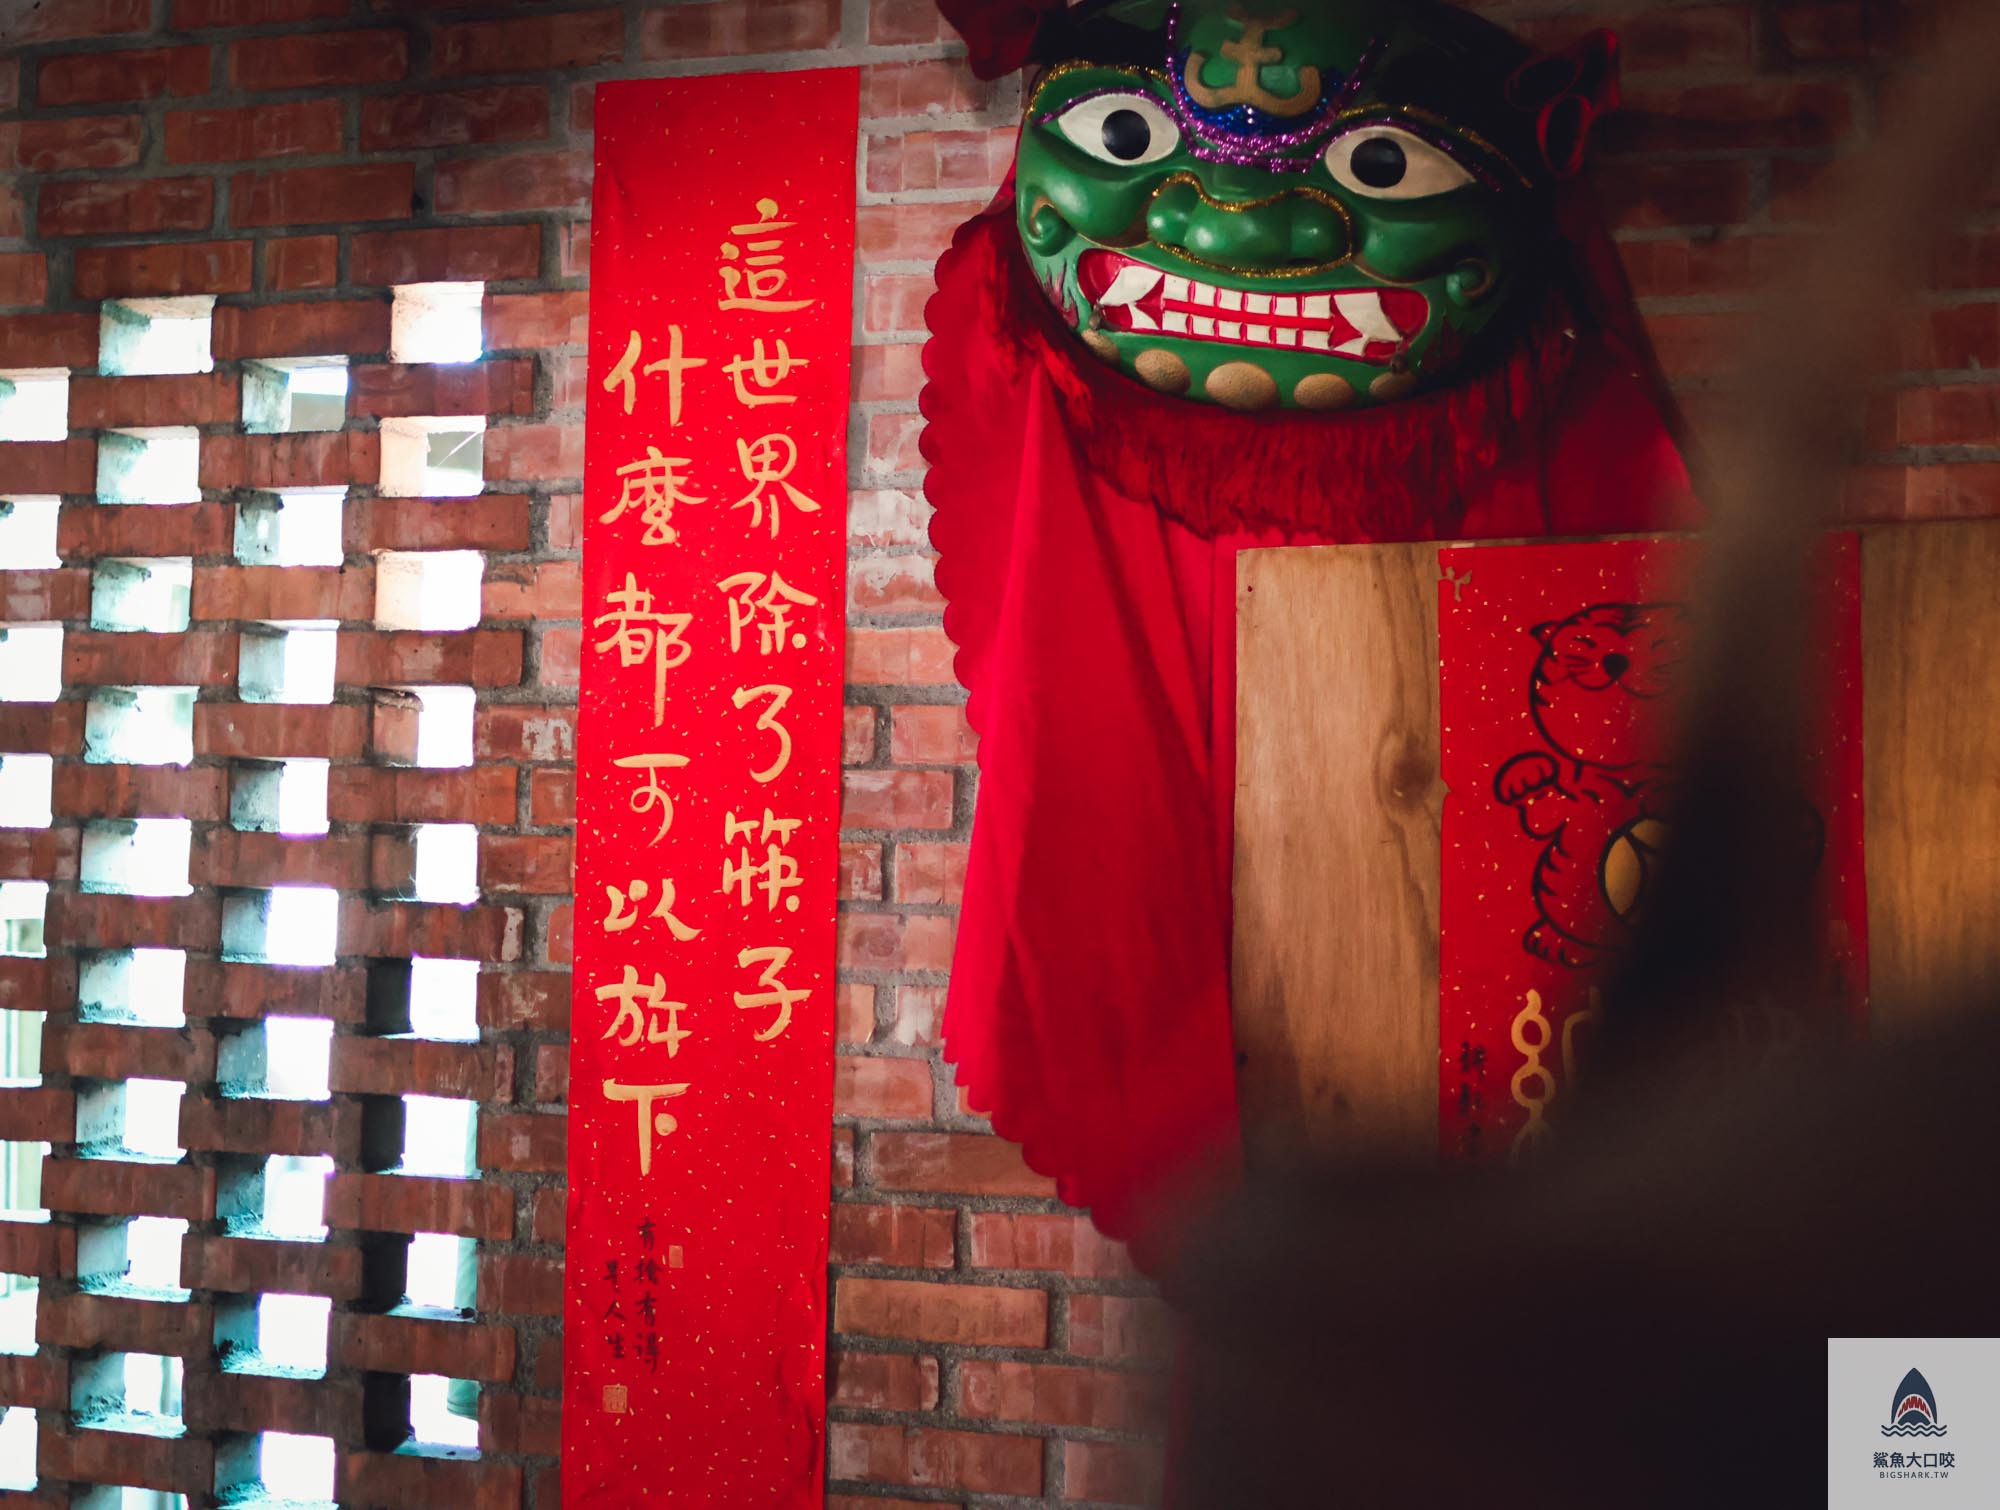 這世界除了筷子
什麼都可以放下
有捨有得
是人生
王
鯊魚大口咬
BIGSHARK.TW